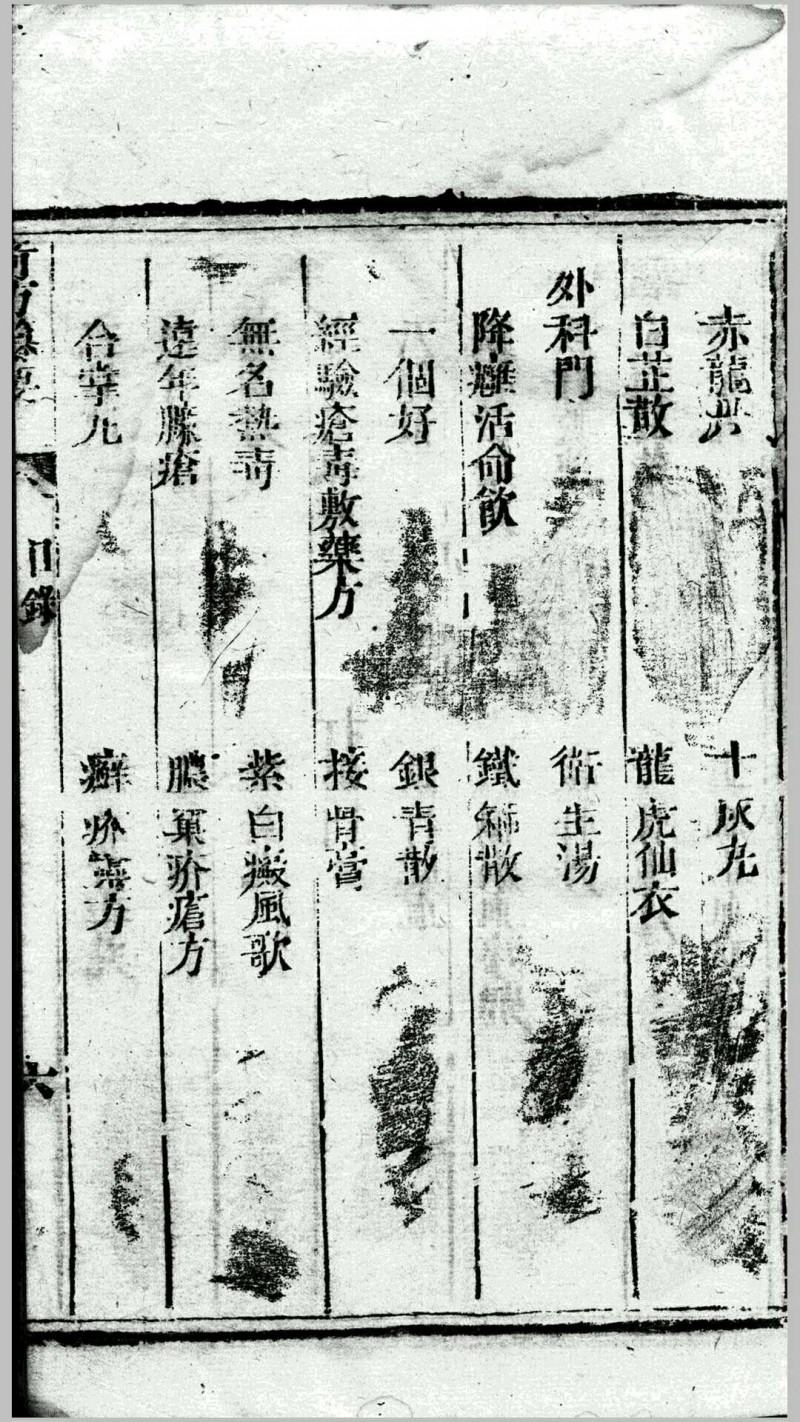 赤龍
十灰丸
白芷散
龍虎仙衣
外科門
衛生湯
降癰活命飲
鐵箍散
一個好
銀青散
經驗瘡毒敷藥方
接骨膏
無名熱毒
紫白癜風歌
遠年臁瘡
膿窠疥瘡方
合掌丸
癬疥藥方
目錄
六